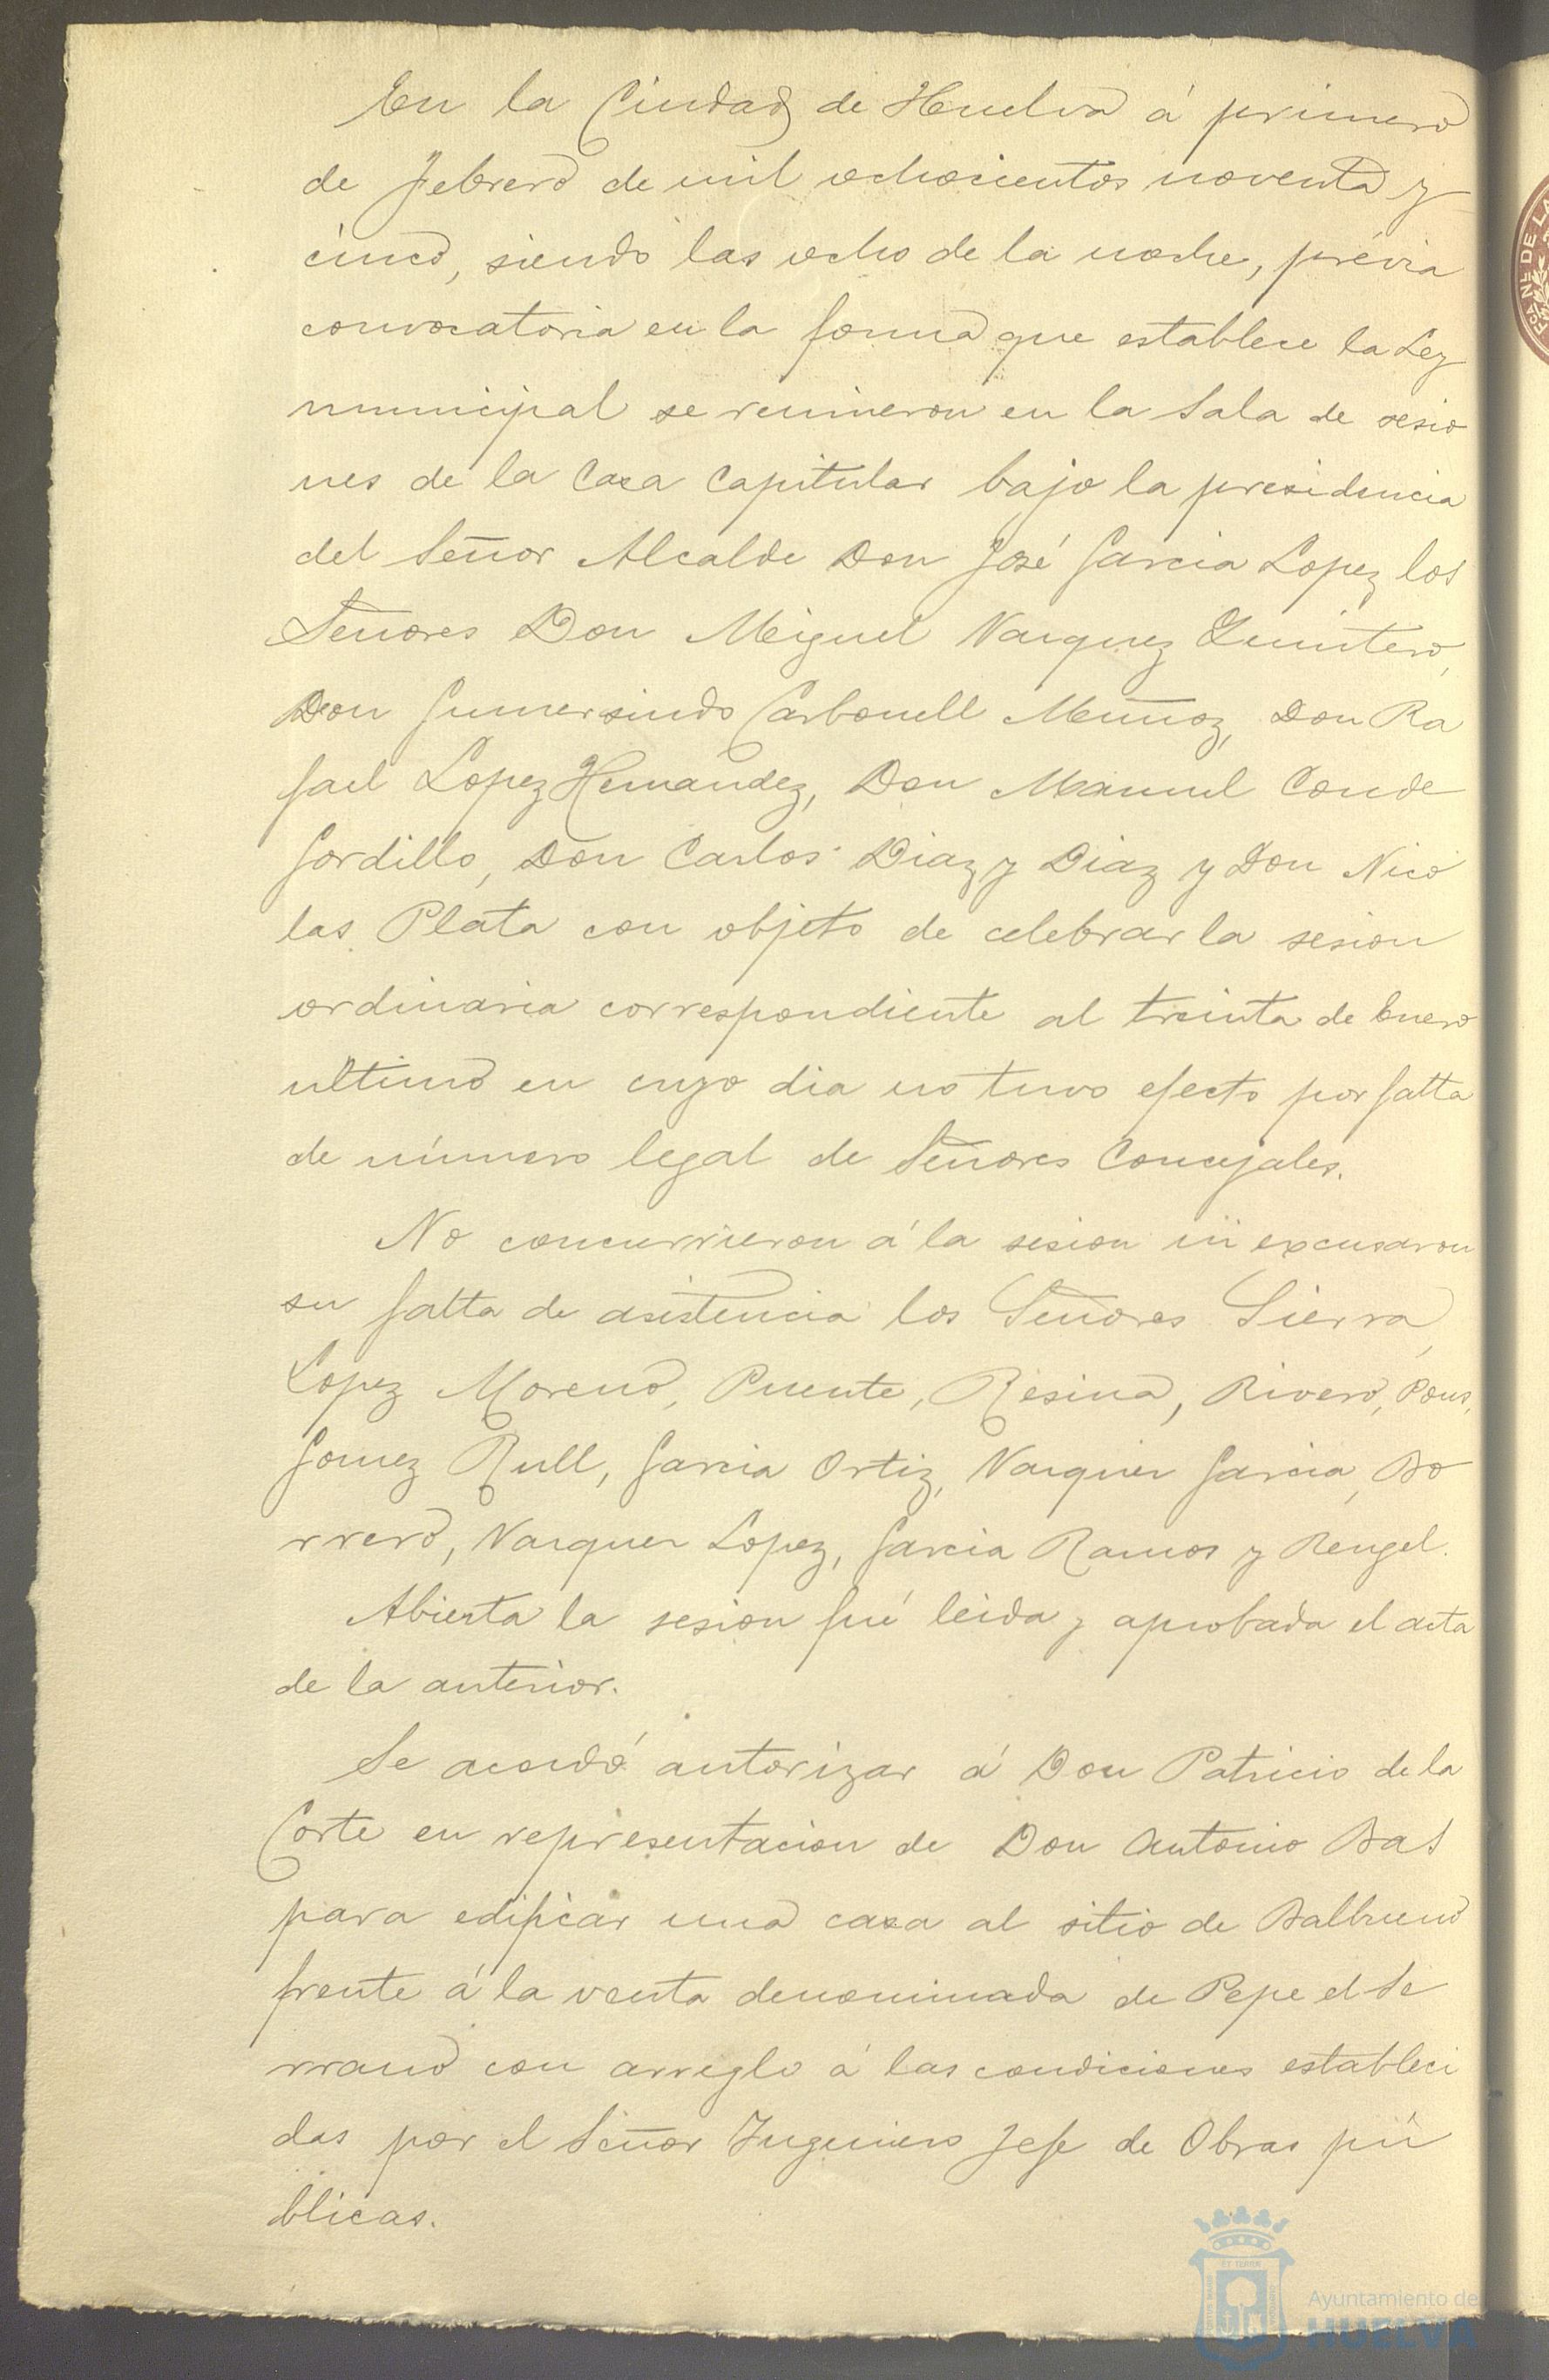 En la Ciudad de Huelva á primero
de Febrero de mil ochocientos noventa y
cinco, siendo las ocho de la noche, prévia
convocatoria en la forma que establece la Ley
municipal se reunieron en la Sala de sesio
nes de la Casa Capitular bajo la presidencia
del Señor Alcalde Don José Garcia Lopez los
Señores Don Miguel Vazquez Quintero,
Don Gumersindo Carbonell Muñoz, Don Ra
fael Lopez Hernandez, Don Manuel Conde
Gordillo, Don Carlos Diaz y Diaz y Don Nico
las Plata con objeto de celebrar la sesion
ordinaria correspondiente al treinta de Enero
ultimo en cuyo dia no tuvo efecto por falta
de número legal de Señores Concejales.
No concurrieron á la sesion ni excusaron
su falta de asistencia los Señores Sierra,
Lopez Moreno, Puente, Resina, Rivero, Pons,
Gomez Rull, Garcia Ortiz, Vazquez Garcia, Bo
rrero, Vazquez Lopez, Garcia Ramos y Rengel.
Abierta la sesion fué leida y aprobada el acta
de la anterior.
Se acordó autorizar á Don Patricio de la
Corte en representacion de Don Antonio Bas
para edificar una casa al sitio de Balbueno
frente á la venta denominada de Pepe el Se
rrano con arreglo á las condiciones estableci
das por el Señor Ingeniero Jefe de Obras pú
blicas.
Ayuntamiento de
HUELVA